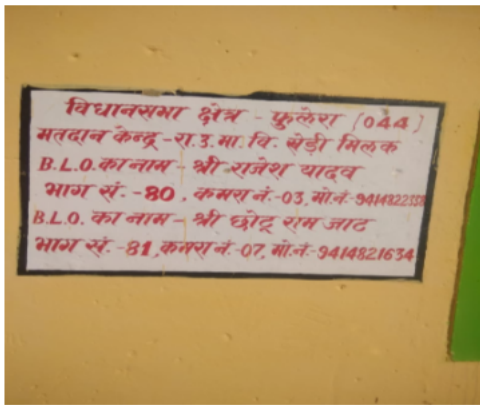 विधानसभा क्षेत्र - फुलेरा (044)
मतदान केन्द्र - रा.उ.मा.वि. खेड़ी मिलक
B.L.O. का नाम - श्री राजेश यादव
भाग सं. - 80, कमरा नं.-03, मो.नं.-
B.L.O. का नाम - श्री छोटू राम जाट
भाग सं. - 81, कमरा नं.-07, मो.नं.-9414821634